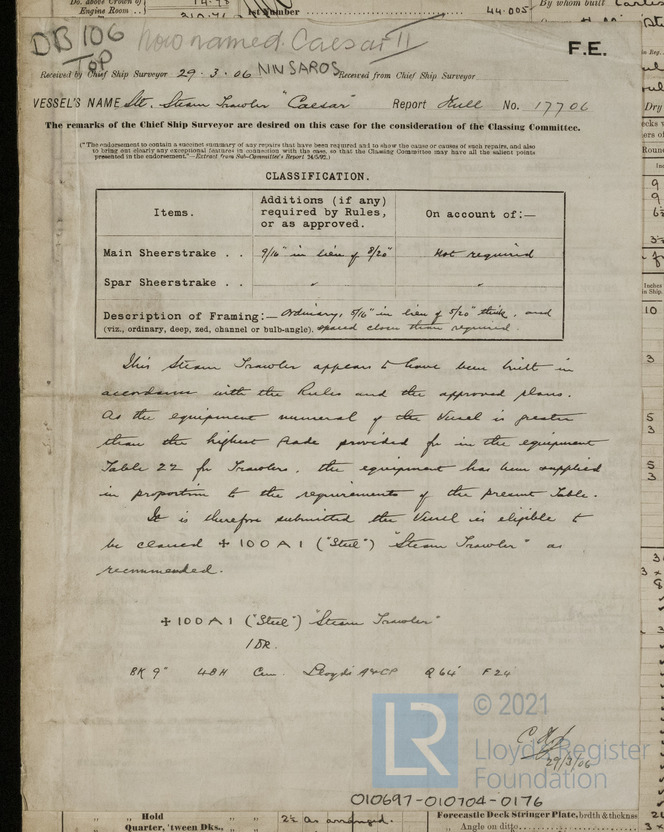 Do. above Crown of
Engine Room ..
1st Number
44.005
By whom built
DB 106
TOP
now named Caesar II
F.E.
Received by Chief Ship Surveyor 29.3.06
NINSAROS
Received from Chief Ship Surveyor
VESSEL'S NAME Stl. Steam Trawler "Caesar" Report Hull No. 17706
The remarks of the Chief Ship Surveyor are desired on this case for the consideration of the Classing Committee.
("The endorsement to contain a succinct summary of any repairs that have been required and to show the cause or causes of such repairs, and also
to bring out clearly any exceptional features in connection with the case, so that the Classing Committee may have all the salient points
presented in the endorsement."—Extract from Sub-Committee's Report 24/5/92.)
CLASSIFICATION.
Items.
Additions (if any)
required by Rules,
or as approved.
On account of:—
Main Sheerstrake . . 9/16" in lieu of 8/20" Not required
Spar Sheerstrake . . " "
Description of Framing:— Ordinary, 5/16" in lieu of 5/20" thick, and
(viz., ordinary, deep, zed, channel or bulb-angle). spaced closer than required.
This Steam Trawler appears to have been built in
accordance with the Rules and the approved plans.
As the equipment numeral of the Vessel is greater
than the highest grade provided for in the equipment
Table 22 for Trawlers, the equipment has been supplied
in proportion to the requirements of the present Table.
It is therefore submitted the Vessel is eligible to
be classed ✠ 100 A 1 ("Steel") "Steam Trawler" as
recommended.
✠ 100 A 1 ("Steel") "Steam Trawler"
1 DK.
BK 9" 4BH Cem. Lloyds A&CP Q 64' F 24'
29/3/06
© 2021
LR
Lloyd's Register
Foundation
010697-010704-0176
" Hold " "
Quarter, 'tween Dks., "
2½ As arranged.
Forecastle Deck Stringer Plate, brdth & thckns
Angle on ditto